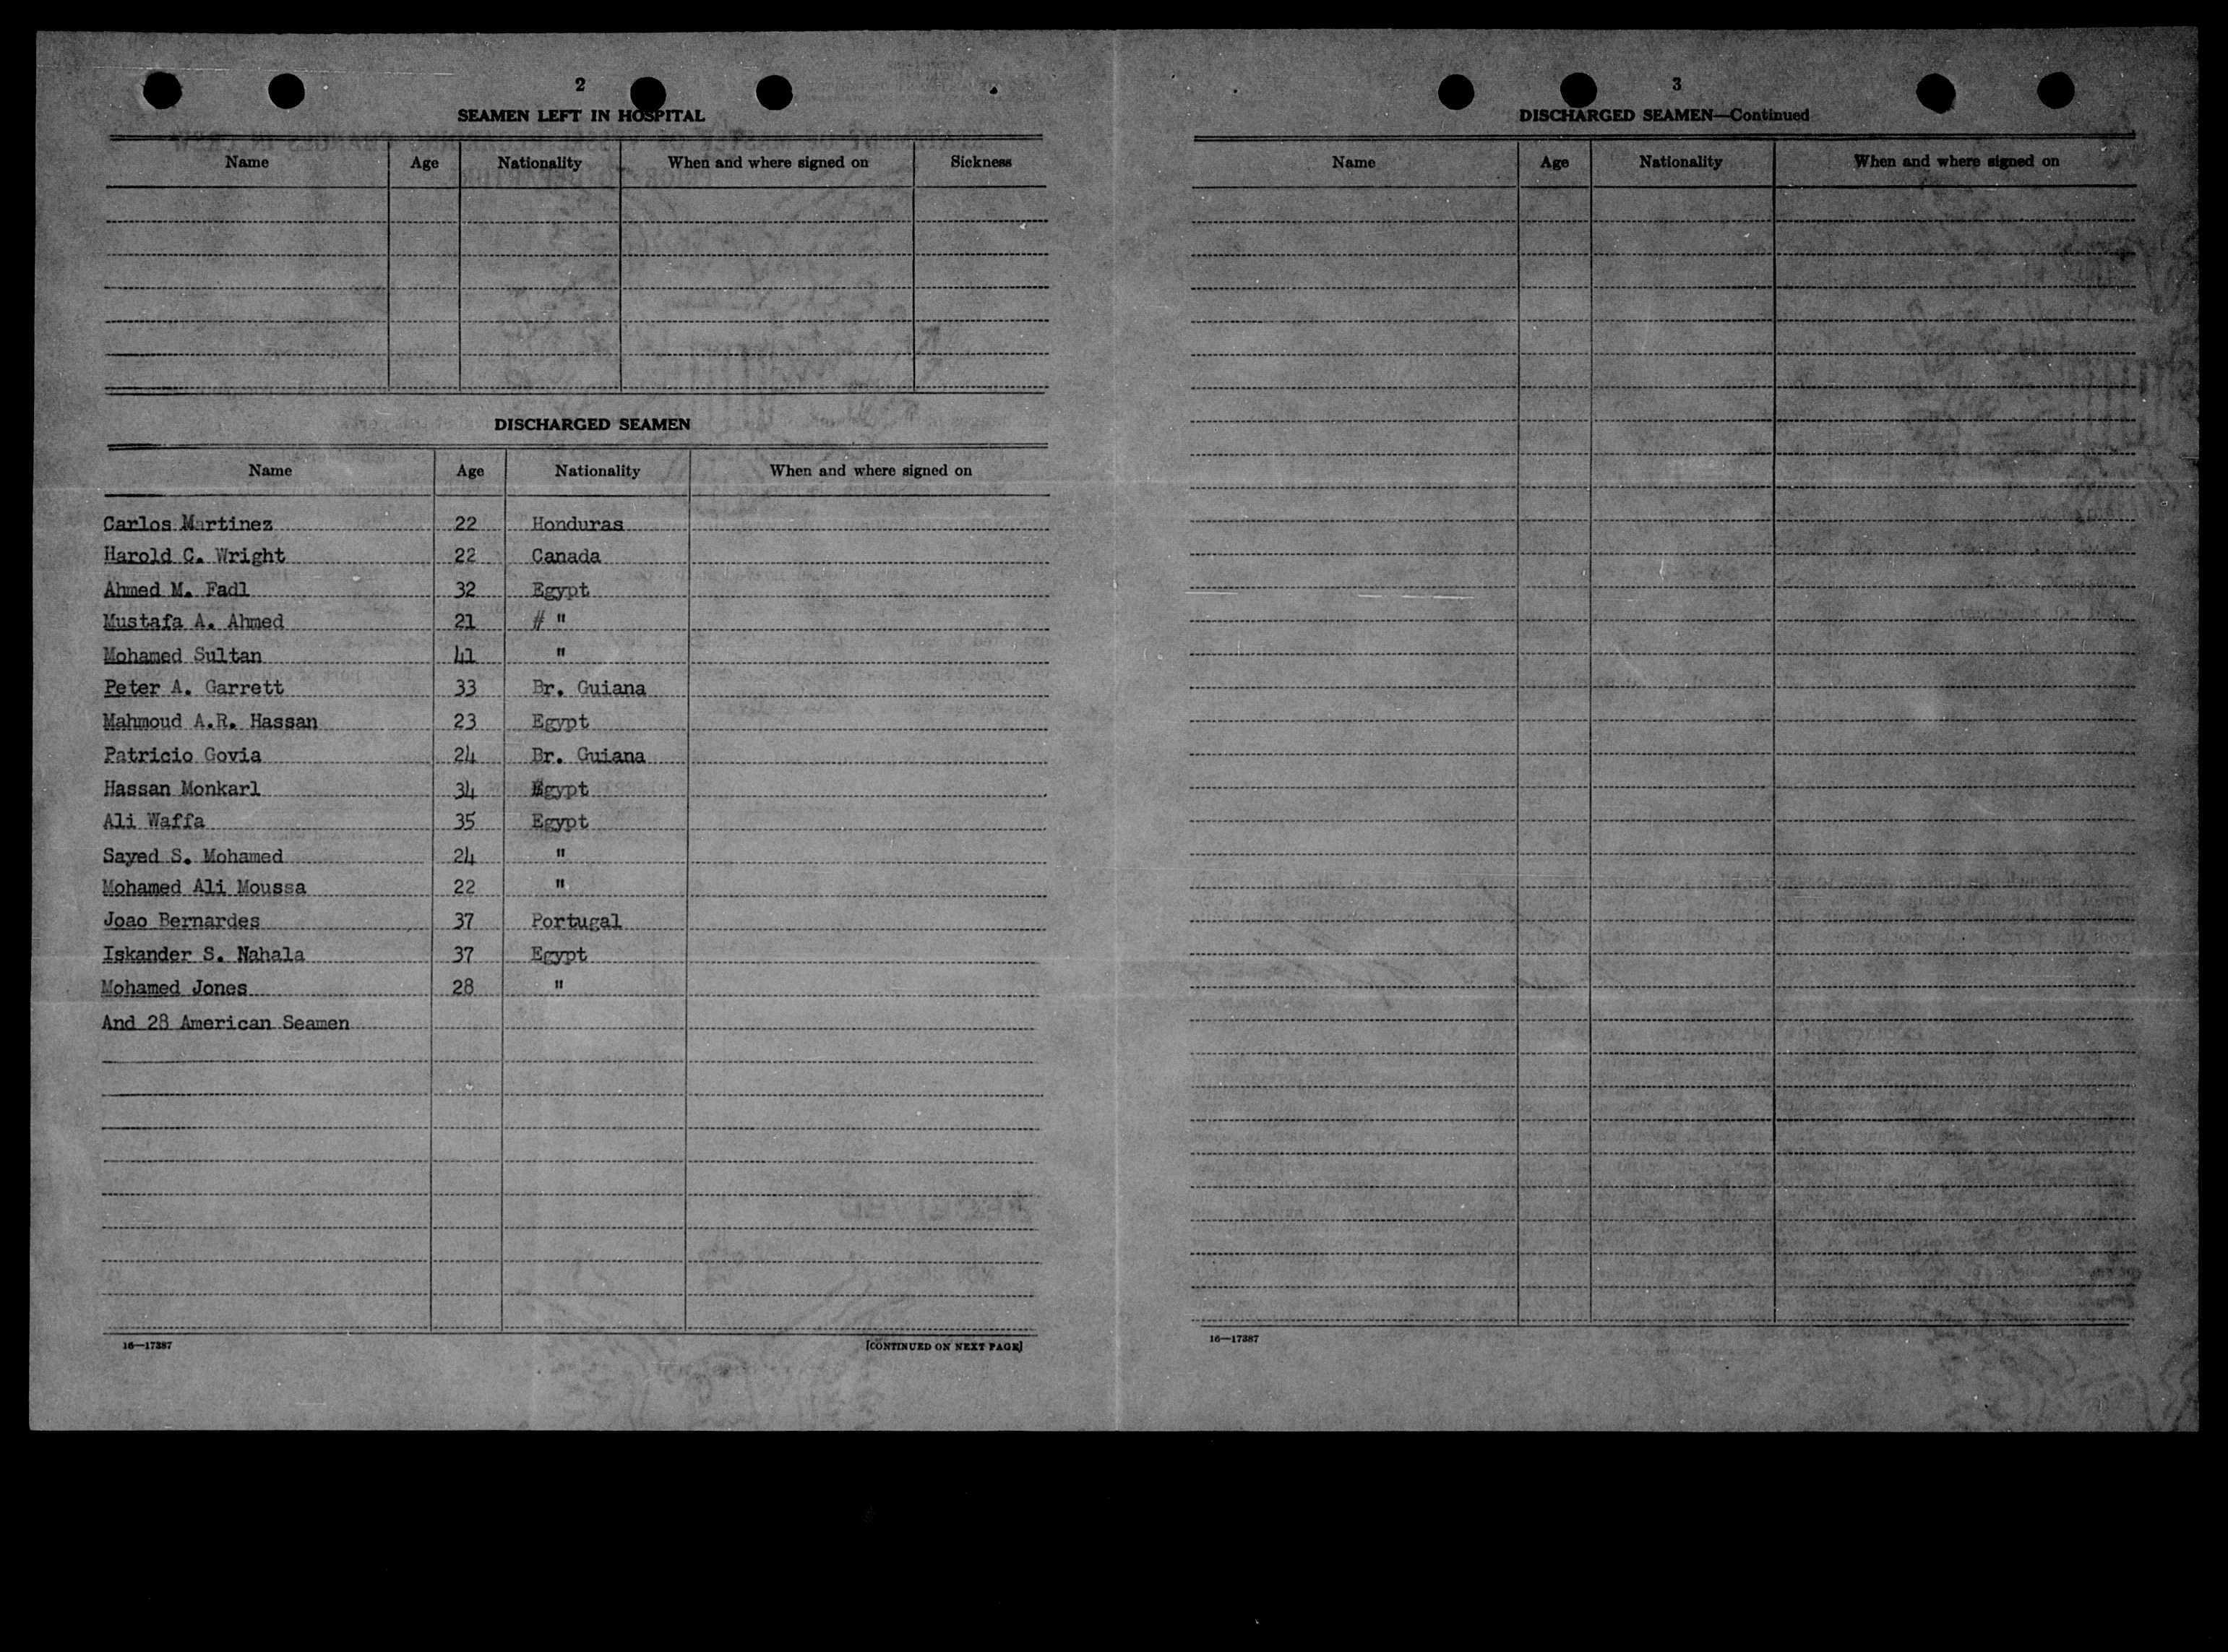 2
SEAMEN LEFT IN HOSPITAL
Name Age Nationality When and where signed on Sickness
DISCHARGED SEAMEN
Name Age Nationality When and where signed on
Carlos Martinez 22 Honduras
Harold C. Wright 22 Canada
Ahmed M. Fadl 32 Egypt
Mustafa A. Ahmed 21 # "
Mohamed Sultan 41 "
Peter A. Garrett 33 Br. Guiana
Mahmoud A.R. Hassan 23 Egypt
Patricio Govia 24 Br. Guiana
Hassan Monkarl 34 Egypt
Ali Waffa 35 Egypt
Sayed S. Mohamed 24 "
Mohamed Ali Moussa 22 "
Joao Bernardes 37 Portugal
Iskander S. Nahala 37 Egypt
Mohamed Jones 28 "
And 28 American Seamen
16—17387 [CONTINUED ON NEXT PAGE]
3
DISCHARGED SEAMEN—Continued
Name Age Nationality When and where signed on
16—17387